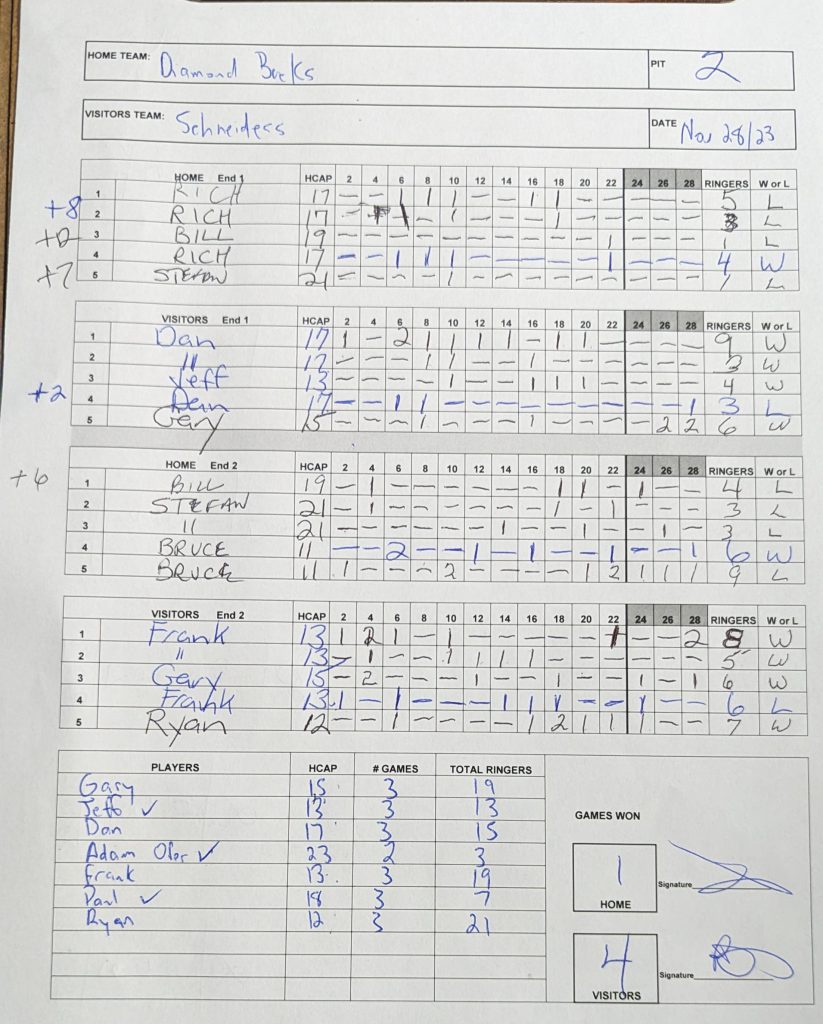 HOME TEAM: Diamond Bucks PIT 2
VISITORS TEAM: Schneiders DATE Nov 28/23
HOME End 1 HCAP 2 4 6 8 10 12 14 16 18 20 22 24 26 28 RINGERS W or L
1 RICH 17 — — 1 1 1 — — 1 1 — — — — — 5 L
+8 2 RICH 17 — 1 — 1 — — — 1 — — — — — 3 L
3 BILL 19 — — — — — — — — — — 1 — — — 1 L
4 RICH 17 — — 1 1 1 — — — — — 1 — — — 4 W
+7 5 STEFAN 21 — — — — 1 — — — — — — — — — 1 L
VISITORS End 1 HCAP 2 4 6 8 10 12 14 16 18 20 22 24 26 28 RINGERS W or L
1 Dan 17 1 — 2 1 1 1 1 — 1 1 — — — — 9 W
2 " 17 — — — 1 1 — — 1 — — — — — — 3 W
3 Jeff 13 — — — — 1 — — 1 1 1 — — — — 4 W
+2 4 Dan 17 — — 1 1 — — — — — — — — — 1 3 L
5 Gary 15 — — — 1 — — — 1 — — — — 2 2 6 W
HOME End 2 HCAP 2 4 6 8 10 12 14 16 18 20 22 24 26 28 RINGERS W or L
+6 1 BILL 19 — 1 — — — — — — 1 1 — 1 — — 4 L
2 STEFAN 21 — 1 — — — — — — 1 — 1 — — — 3 L
3 " 21 — — — — — — 1 — — 1 — — 1 — 3 L
4 BRUCE 11 — — 2 — — 1 — 1 — — 1 — — 1 6 W
5 BRUCE 11 1 — — — 2 — — — — 1 2 1 1 1 9 L
VISITORS End 2 HCAP 2 4 6 8 10 12 14 16 18 20 22 24 26 28 RINGERS W or L
1 Frank 13 1 2 1 — 1 1 — — 2 8 W
2 " 13 — 1 — — 1 1 1 1 — — — — — — 5 W
3 Gary 15 — 2 — — — 1 — — 1 — — 1 — 1 6 W
4 Frank 13 1 — 1 — — — 1 1 1 — — 1 — — 6 L
5 Ryan 12 — — 1 — — — — 1 2 1 1 1 — — 7 W
PLAYERS HCAP # GAMES TOTAL RINGERS
Gary 15 3 19
Jeff ✓ 13 3 13
Dan 17 3 15
Adam ✓ 23 2 3
Frank 13 3 19
Paul ✓ 18 3 7
Ryan 12 3 21
GAMES WON
1
HOME
Signature
4
VISITORS
Signature